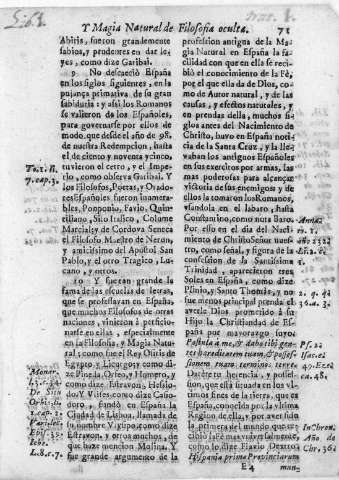 Y Magia Natural de Filosofia oculta. 71
Abiris, fueron grandemente
sabios, y prudentes en dar le-
yes, como dize Garibal.
9 No descaeciò España
en los siglos siguientes, en la
pujança primitiva de su gran
sabiduria: y assi los Romanos
se valieron de los Españoles,
para governarse por ellos de
modo, que desde el año de 98.
de nuestra Redempcion, hasta
el de ciento y noventa y cinco,
tuvieron el cetro, y el Impe-
rio, como observa Garibal. Y
los Filosofos, Poetas, y Orado-
res Españoles fueron innumera-
bles, Pomponio, Favio, Quin-
tiliano, Silo Italico, Colume
Marcial, y de Cordova Seneca
el Filosofo Maestro de Neron,
y amicissimo del Apostol San
Pablo, y el otro Tragico, Lu-
cano, y otros.
10 Y fueron grande la
fama de las escuelas de letras,
que se professavan en España,
que muchos Filosofos de otras
naciones, vinieron à perficio-
narse en ellas, especialmente
en la Filosofia, y Magia Natu-
ral; como fue el Rey Osiris de
Egypto, y Licurgo; como di-
ze Pineda, Orfeo, y Homero, y
como dize Estravon, Hesiodo,
y Vlises, como dize Casio-
doro, fundò en España la
Ciudad de Lisboa, llamada de
su nombre Vlysipo, como dize
Estravon, y otros muchos, de
que haze mencion Molina. Y
fue grande argumento de la
To. 1. li.
7. cap. 3.
Monar.
De Situ
Orbis. li.
3. cap. 2.
Li. 8. c. 7.
profession antigua de la Ma-
gia Natural en España la fa-
cilidad con que en ella se reci-
biò el conocimiento de la Fè,
por el que ella da de Dios, co-
mo de Autor natural, y de las
causas, y efectos naturales, y
en prenda della, muchos si-
glos antes del Nacimiento de
Christo, huvo en España noti-
cia de la Santa Cruz, y la lle-
vaban los antiguos Españoles
en sus exercitos por armas, las
mas poderosas para alcançar
victoria de sus enemigos; y de
ellos la tomaron los Romanos,
vsandola en el labaro, hasta
Constantino, como nota Baro.
Por esso en el dia del Naci-
miento de Christo Señor nues-
tro, como señal, y figura de la
confession de la Santissima
Trinidad, aparecieron tres
Soles en España, como dize
Plinio, y Santo Thomas, y no
fue menos principal prenda el
averle Dios prometido à su
Hijo la Christiandad de Es-
paña por mayorazgo suyo.
Postula à me, & dabo tibi gen-
tes hæreditatem tuam, & posses-
sionem tuam terminos terræ
Darète en herencia, y posses-
sion, que està situada en los vl-
timos fines de la tierra, que es
España, conocida por la vltima
Region de ella, y por aver sido
la primera del mundo que re-
cibiò la Fè
como lo dize Flavio Dextro:
Hispania prima Provinciarum
E 4 mun-
2. q. 
36. a. 3.
Ps. 22
Isai. 41
49. Ezel
ca. 48.
In Chron.
Año de
Chr. 36.